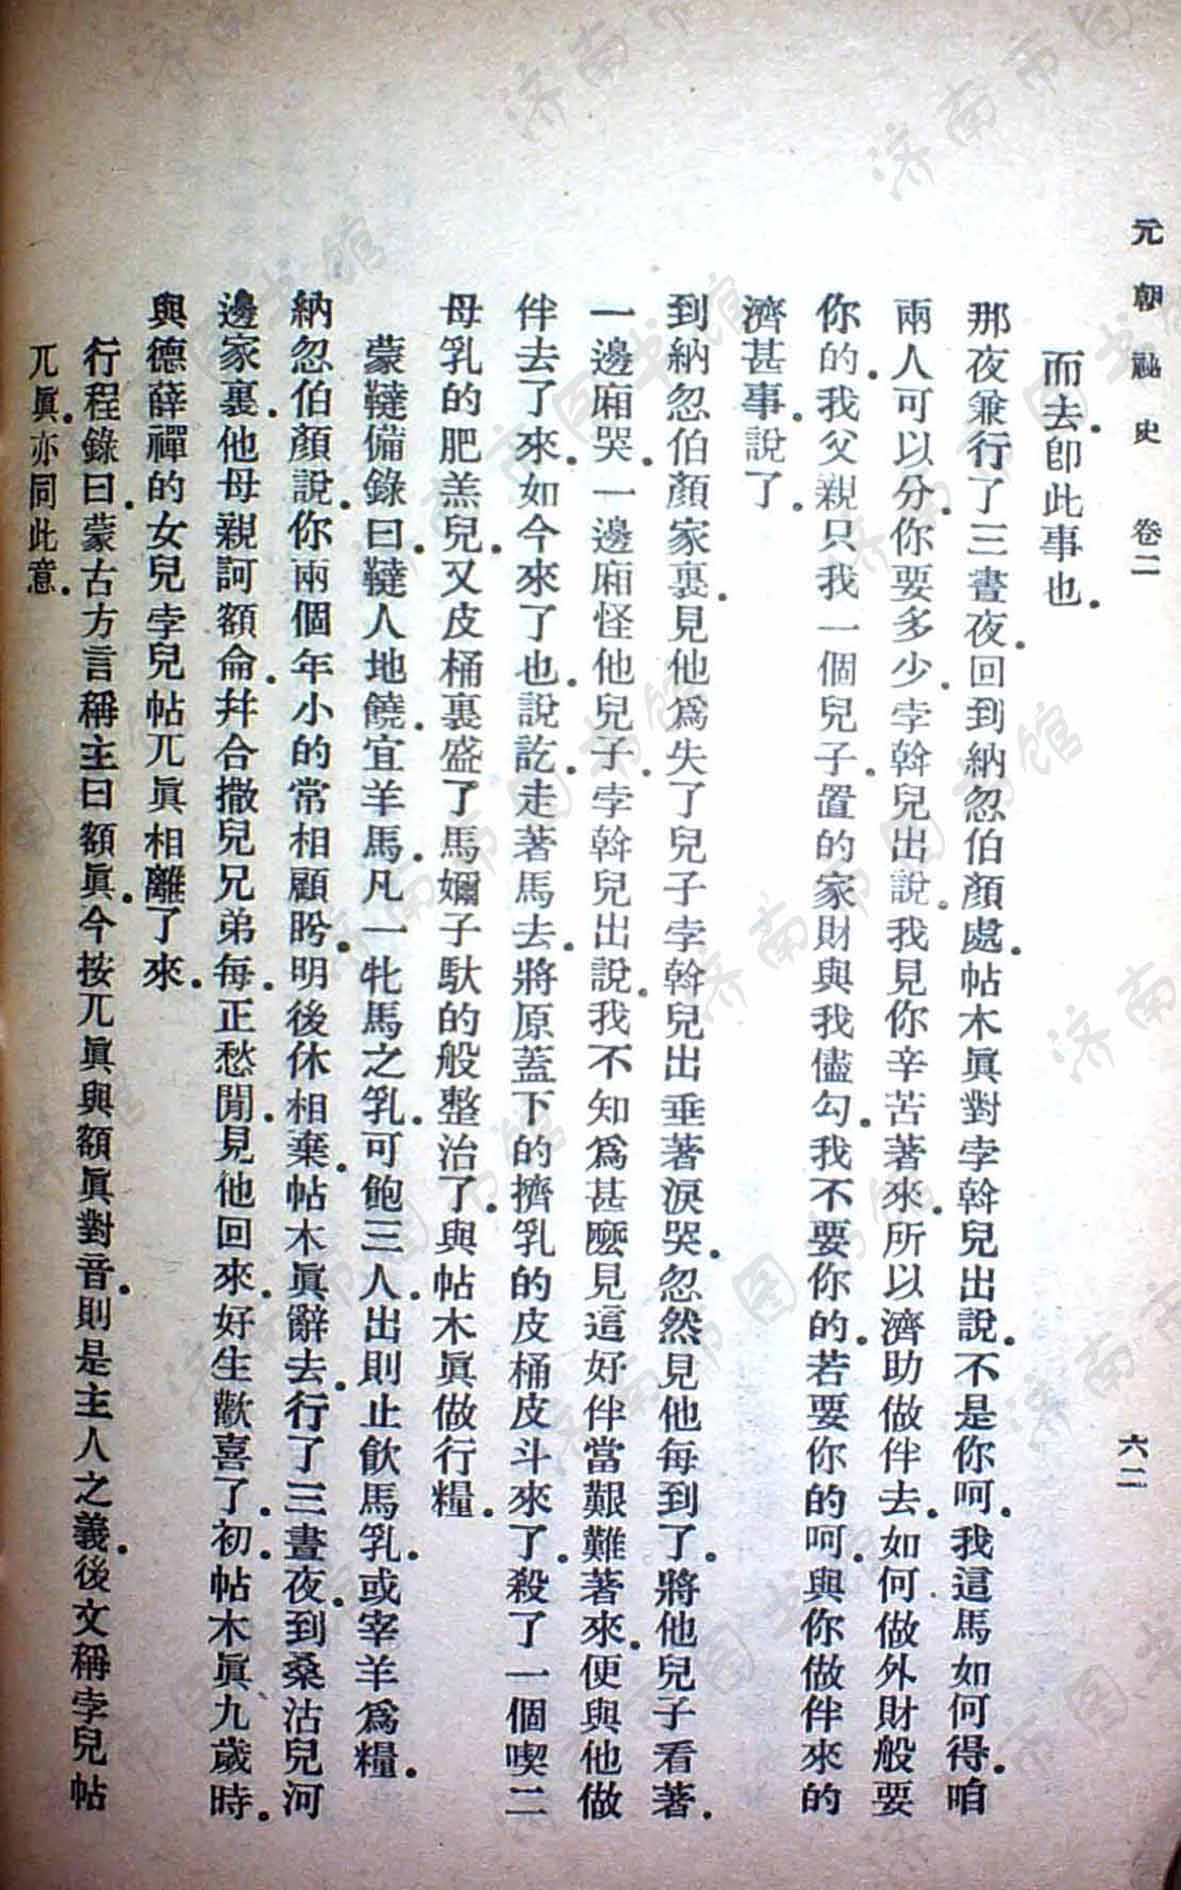 元朝祕史　卷二　六二
而去。卽此事也。
那夜兼行了三晝夜。回到納忽伯顏處。帖木眞對孛斡兒出說。不是你呵。我這馬如何得。咱
兩人可以分。你要多少。孛斡兒出說。我見你辛苦著來。所以濟助做伴去。如何做外財般要
你的。我父親只我一個兒子。置的家財與我儘勾。我不要你的。若要你的呵。與你做伴來的
濟甚事。說了。
到納忽伯顏家裏。見他爲失了兒子孛斡兒出垂著淚哭。忽然見他每到了。將他兒子看著。
一邊廂哭。一邊廂怪他兒子。孛斡兒出說。我不知爲甚麼見這好伴當艱難著來。便與他做
伴去了來。如今來了也。說訖。走著馬去。將原蓋下的擠乳的皮桶皮斗來了。殺了一個喫二
母乳的肥羔兒。又皮桶裏盛了馬嬭子馱的般整治了。與帖木眞做行糧。
蒙韃備錄曰。韃人地饒。宜羊馬。凡一牝馬之乳。可飽三人。出則止飮馬乳。或宰羊爲糧。
納忽伯顏說。你兩個年小的常相顧盻。明後休相棄。帖木眞辭去。行了三晝夜。到桑沽兒河
邊家裏。他母親訶額侖。幷合撒兒兄弟每。正愁閒。見他回來。好生歡喜了。初。帖木眞九歲時。
與德薛禪的女兒孛兒帖兀眞相離了來。
行程錄曰。蒙古方言稱主曰額眞。今按兀眞與額眞對音。則是主人之義。後文稱孛兒帖
兀眞。亦同此意。